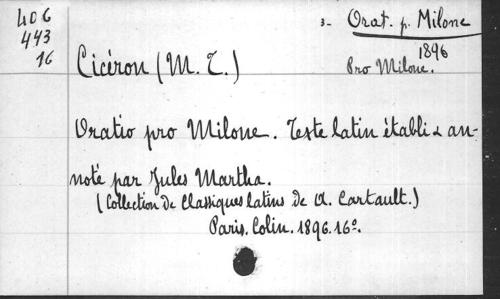 406
443
16
3- Orat. p. Milone
1896
Pro Milone.
Cicéron (M. T.)
Oratio pro Milone. Texte latin établi & an-
noté par Jules Martha.
(Collection de Classiques latins de A. Cartault.)
Paris. Colin. 1896. 16º.